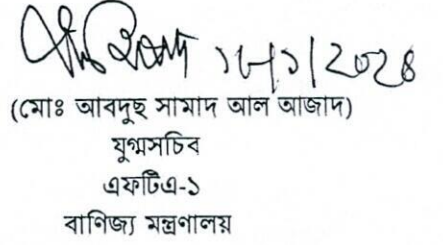 ১৮/১/2024
(মোঃ আবদুছ সামাদ আল আজাদ)
যুগ্মসচিব
এফটিএ-১
বাণিজ্য মন্ত্রণালয়